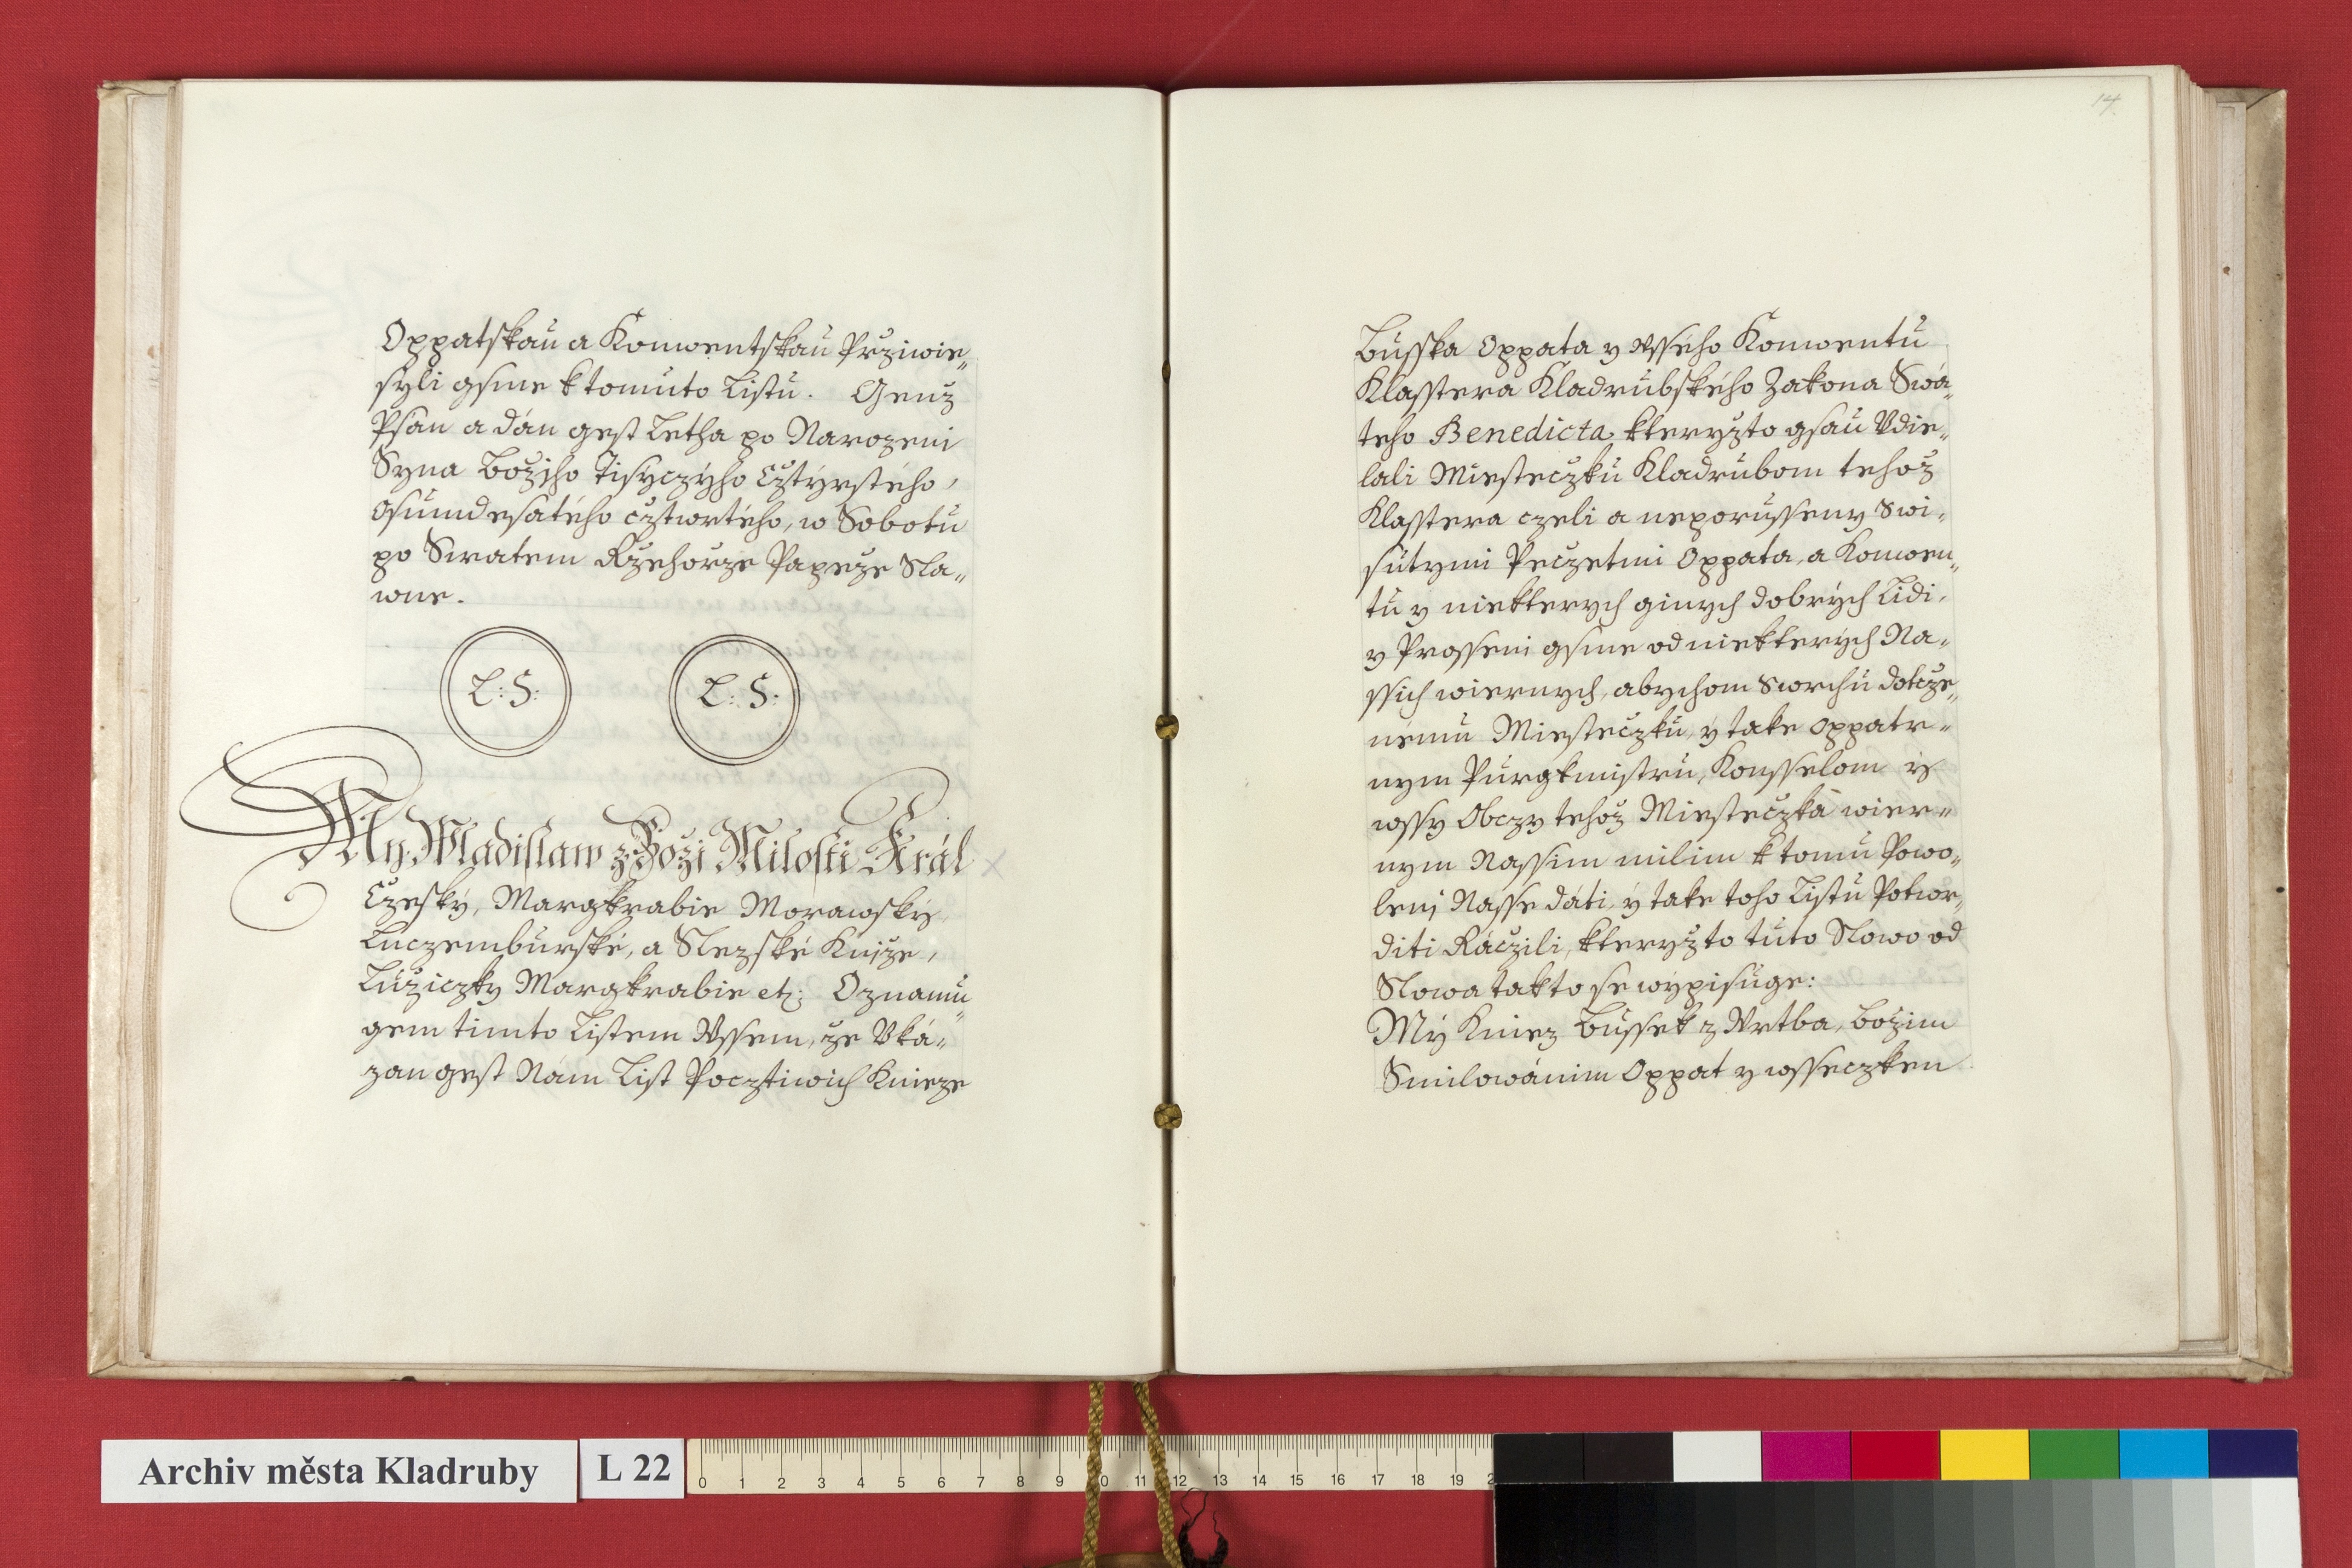 Oppatskau a Konwentskau Przwie„
syli gsme k tomuto Listu. Genž
Psan a dán gest Letha po Narozeni
Syna Božjho Tisyczýho Cztyrstého,
Osumdesatého cztwrtého, w Sobotu
po Swatem Ržehorze Papeže Sla„
wne.
L: S:
L: S:
My Wladislaw z Boží Milosti Král
Czeský, Margkrabie Morawský,
Luczemburské, a Slezské Kniže,
Lužiczky Margkrabie etz; Oznamu„
gem timto Listem Wssem, že Vká„
zan gest Nám List Pocztiwich Knieze
14
Busska Oppata y wsseho Konwentu
Klasstera Kladrubského Zakona Swa„
teho Benedicta, kteryžto gsau Vdie„
lali Miesteczku Kladrubom tehož
Klasstera czeli a neporusseny Swi„
sutymi Peczetmi Oppata, a Konwen„
tu y niekterych ginych dobrých Lidi,
y Prosseni gsme od niekterých Na„
ssich wiernych, abychom Swrchu dotcze„
nému Miesteczku, ý take Oppatr„
nym Purgkmistru, Konsselom ý
wssy Obczy tehož Miesteczka wier„
nym Nassim milim k tomu Powo„
lenj Nasse dáti, ý take toho Listu Potwr„
diti Ráczili, kteryžto tuto Slowo od
Slowa takto se wýpisuge:
Mý Kniez Bussek z Wrtba, Božim
Smilowánim Oppat y wsseczken
Archiv města Kladruby
L 22
0 1 2 3 4 5 6 7 8 9 10 11 12 13 14 15 16 17 18 19 2